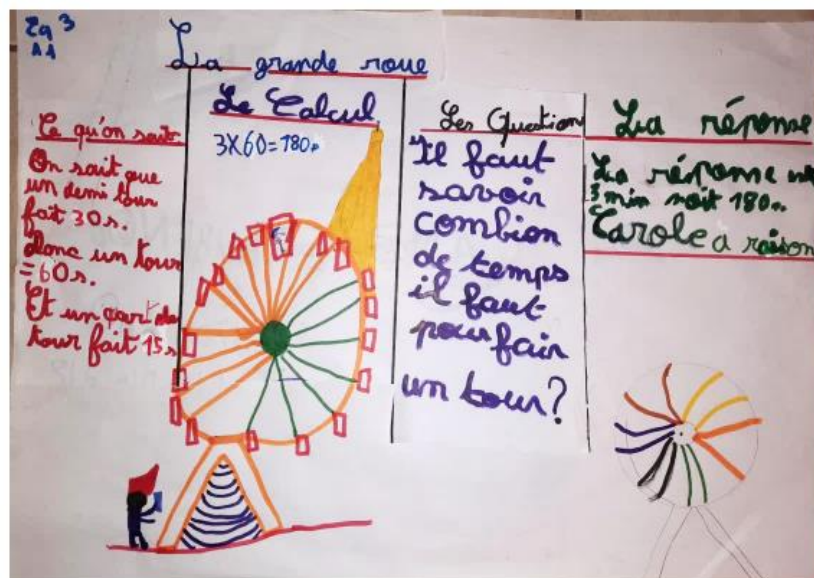 Eq 3
AA
La grande roue
Ce qu'on sait
On sait que
un demi tour
fait 30s.
donc un tour
= 60s.
Et un quart de
tour fait 15s
Le Calcul
3x60=180s
Les Quation
Il faut
savoir
combion
de temps
il faut
pour fair
un tour?
La réponse
La réponse est
3min soit 180s
Carole a raison